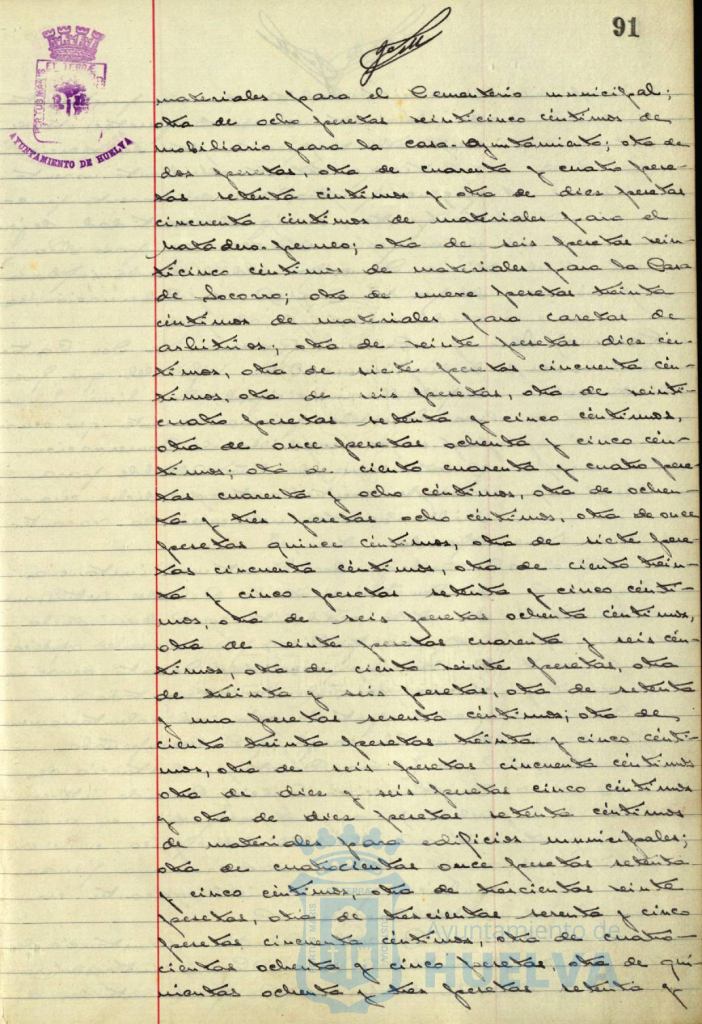 91
PORTUS MARIS
ET TERRAE
AYUNTAMIENTO DE HUELVA
materiales para el Cementerio municipal;
otra de ocho pesetas veinticinco céntimos de
mobiliario para la casa-ayuntamiento; otra de
dos pesetas, otra de cuarenta y cuatro pese-
tas setenta céntimos y otra de diez pesetas
cincuenta céntimos de materiales para el
Matadero-perneo; otra de seis pesetas vein-
ticinco céntimos de materiales para la Casa
de Socorro; otra de nueve pesetas treinta
céntimos de materiales para casetas de
arbitrios; otra de veinte pesetas diez cén-
timos, otra de siete pesetas cincuenta cén-
timos, otra de seis pesetas, otra de veinti-
cuatro pesetas setenta y cinco céntimos,
otra de once pesetas ochenta y cinco cén-
timos; otra de ciento cuarenta y cuatro pese-
tas cuarenta y ocho céntimos, otra de ochen-
ta y tres pesetas ocho céntimos, otra de once
pesetas quince céntimos, otra de siete pese-
tas cincuenta céntimos, otra de ciento trein-
ta y cinco pesetas setenta y cinco cénti-
mos, otra de seis pesetas ochenta céntimos,
otra de veinte pesetas cuarenta y seis cén-
timos, otra de ciento veinte pesetas, otra
de treinta y seis pesetas, otra de setenta
y una pesetas sesenta céntimos; otra de
ciento treinta pesetas treinta y cinco cénti-
mos, otra de seis pesetas cincuenta céntimos
otra de diez y seis pesetas cinco céntimos
y otra de diez pesetas setenta céntimos
de materiales para edificios municipales;
otra de cuatrocientas once pesetas setenta
y cinco céntimos, otra de trescientas veinte
pesetas, otra de trescientas sesenta y cinco
pesetas cincuenta céntimos, otra de cuatro-
cientas ochenta y cinco pesetas, otra de qui-
nientas ochenta y tres pesetas setenta y
Ayuntamiento de
HUELVA